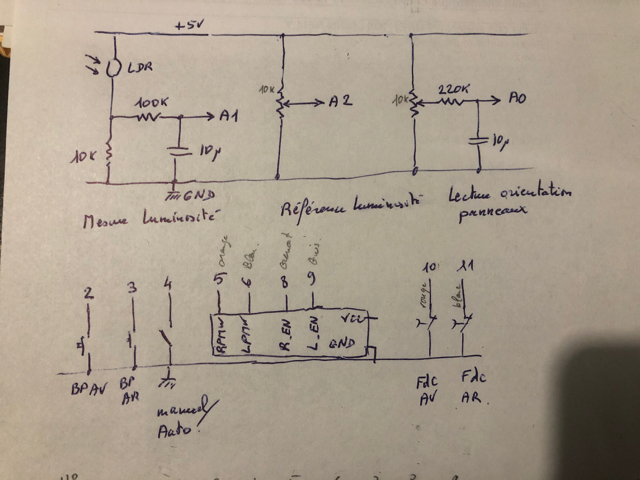 +5V
LDR
100K
A1
10K
10µ
GND
10K
A2
10K
220K
A0
10µ
Mesure luminosité
Référence luminosité
Lecture orientation
panneaux
orange
2
3
4
5
6
8
9
10
11
rouge
RPMW
LPMW
R_EN
L_EN
VCC
GND
BP AV
BP
AR
manuel/
Auto
Fdc
AV
Fdc
AR